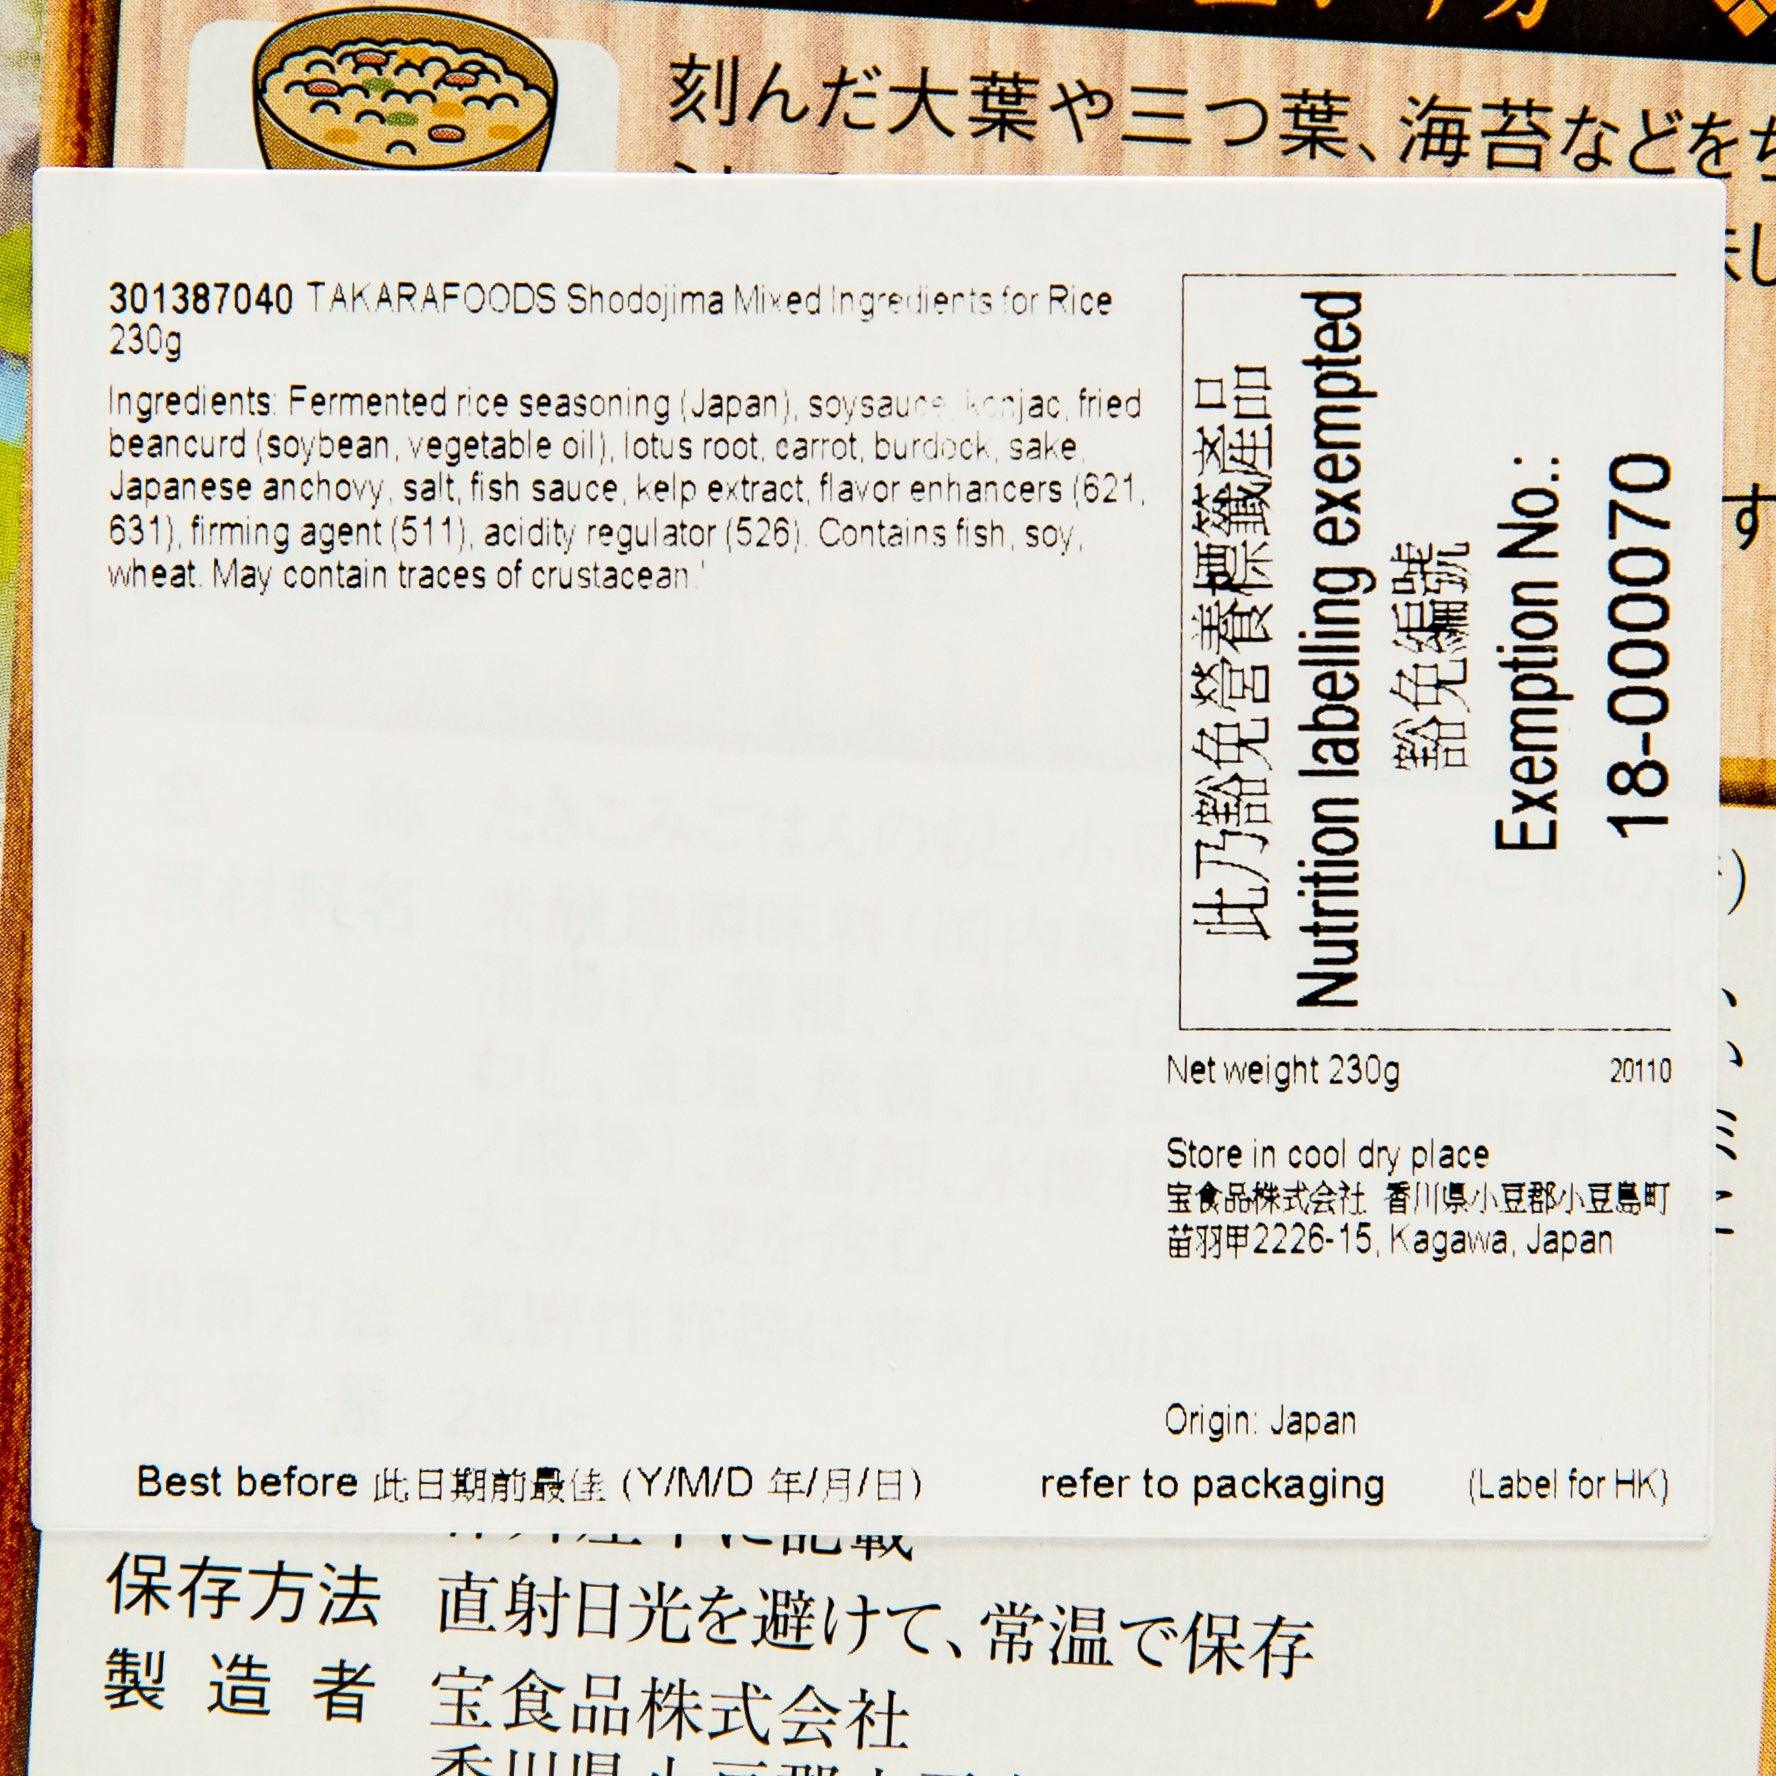 刻んだ大葉や三つ葉、海苔などをち
301387040 TAKARAFOODS Shodojima Mixed Ingredients for Rice
230g
Ingredients: Fermented rice seasoning (Japan), soysauce, konjac, fried
beancurd (soybean, vegetable oil), lotus root, carrot, burdock, sake,
Japanese anchovy, salt, fish sauce, kelp extract, flavor enhancers (621,
631), firming agent (511), acidity regulator (526). Contains fish, soy,
wheat. May contain traces of crustacean.'
此乃豁免營養標籤產品
Nutrition labelling exempted
豁免編號
Exemption No.:
18-000070
Net weight 230g 20110
Store in cool dry place
宝食品株式会社 香川県小豆郡小豆島町
苗羽甲2226-15, Kagawa, Japan
Origin: Japan
Best before 此日期前最佳 (Y/M/D 年/月/日) refer to packaging (Label for HK)
保存方法 直射日光を避けて、常温で保存
製造者 宝食品株式会社